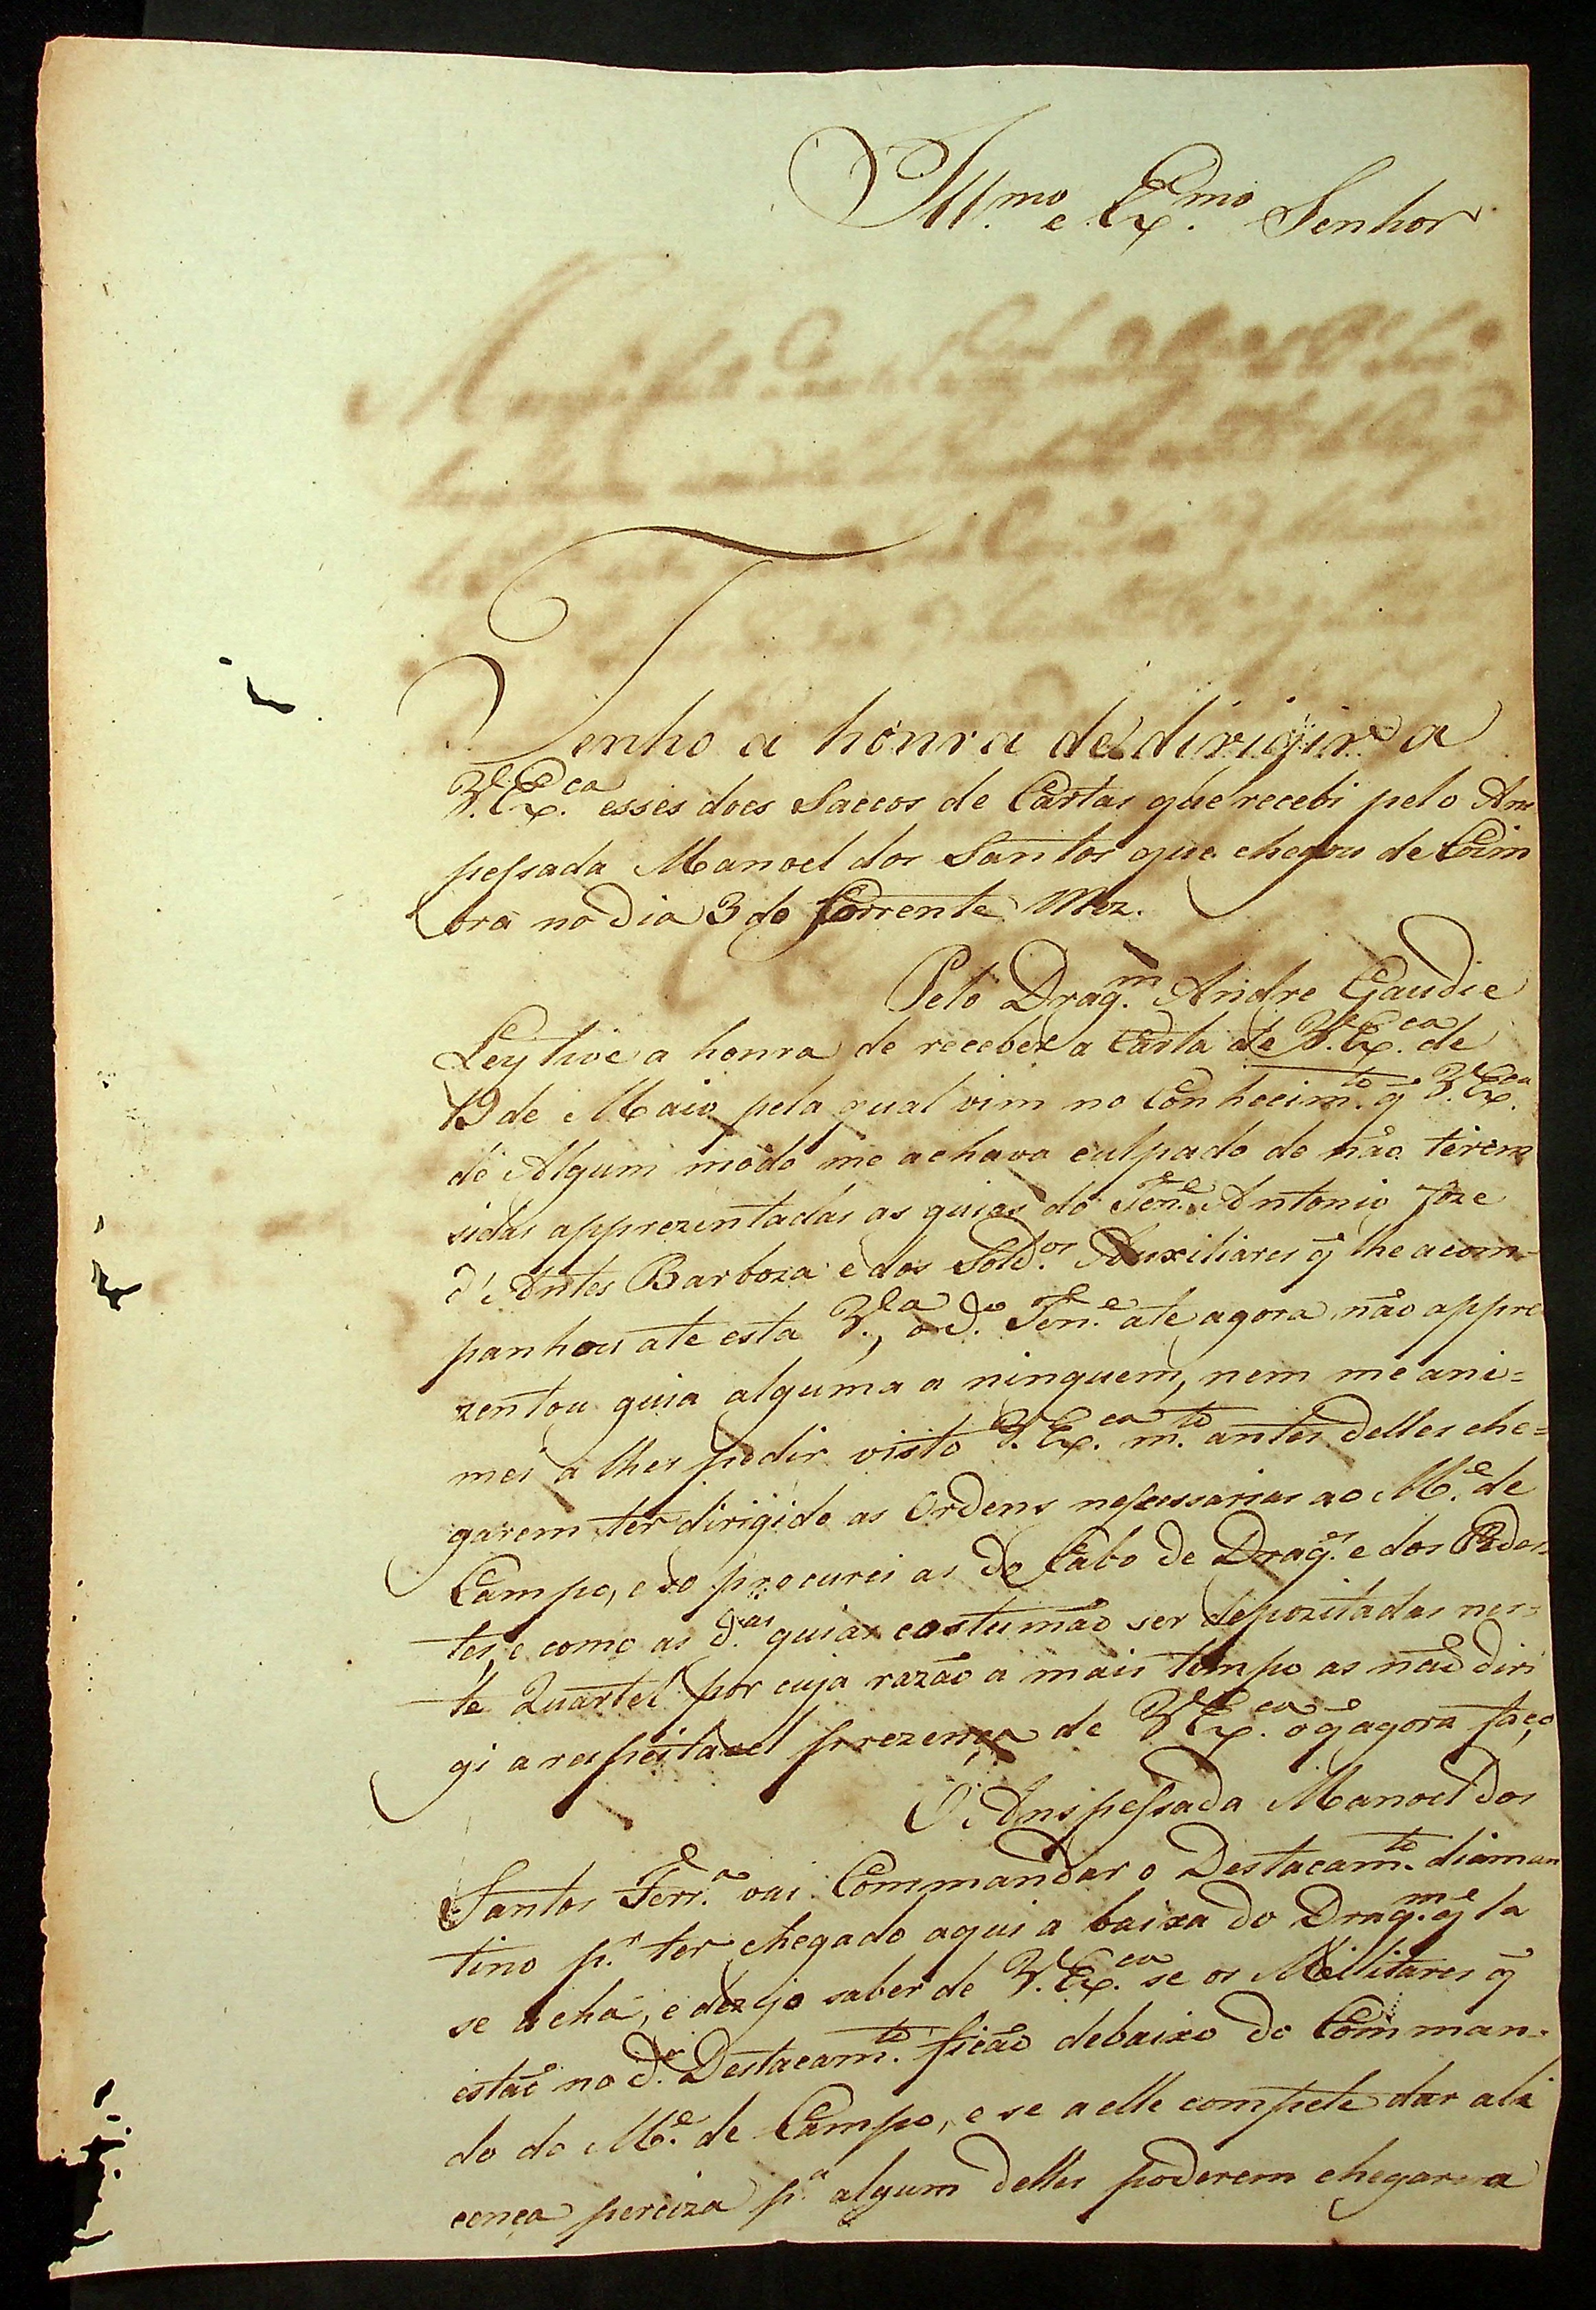 Ill.mo e Ex.mo Senhor
Tenho a honra de dirigir a
V. Ex.ca esses does Saccos de Cartas que recebi pelo Ans
pessada Manoel dos Santos que chegou de Coim
bra no dia 3 do Corrente Mez.
Pelo Drag.m Andre Gaudie
Ley tive a honra de receber a Carta de V. Ex.ca de
19 de Maio pela qual vim no Conhecim.to q̃ V. Ex.ca
de Algum modo me achava culpado de não terem
sidas apprezentadas as guias do Ten.e Antonio Joze
d'Antes Barboza e dos Sold.os Auxiliares q̃ lhe acom-
panhou ate esta V.a, o d.o Ten.e ate agora não appre
zentou guia alguma a ninguem, nem me ani=
mei a lhes pedir visto V. Ex.ca m.to antes delles che=
garem ter dirigido as Ordens nessessarias ao M.e de
Campo, e so procurei as do Cabo de Drag.es e dos Pedes-
tes, e como as d.as guias costumão ser depozitadas nes=
te Quartel por cuja razão a mais tempo as não diri
gi a respeitavel prezença de V. Ex.ca o q̃ agora faço,
O Anspessada Manoel dos
Santos Ferr.a vai Commandar o Destacam.to diaman
tino p.r ter chegado aqui a baixa do Drag.m q̃ la
se acha, e dezejo saber de V. Ex.ca se os Millitares q̃
estão no d.o Destacam.to ficão debaixo do Comman-
do do M.e de Campo, e se a elle compete dar a li
cença perciza p.a algum delles poderem chegar a